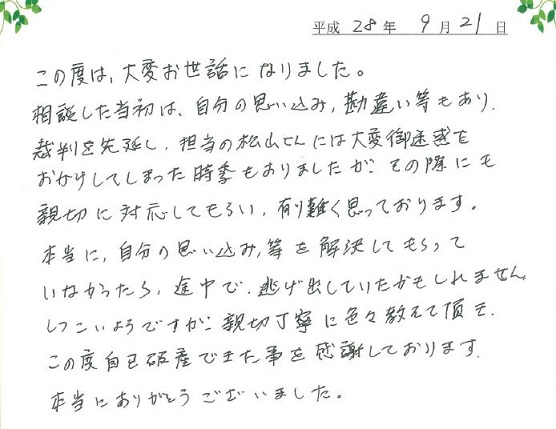 平成 28年 9月21日
この度は、大変お世話になりました。
相談した当初は、自分の思い込み、勘違い等もあり、
裁判を先延し、担当の松山さんには大変御迷惑を
おかけしてしまった時季もありましたが、その際にも
親切に対応してもらい、有り難く思っております。
本当に、自分の思い込み、等を解決してもらって
いなかったら、途中で、逃げ出していたかもしれません。
しつこいようですが、親切丁寧に色々教えて頂き、
この度自己破産できた事を感謝しております。
本当にありがとうございました。